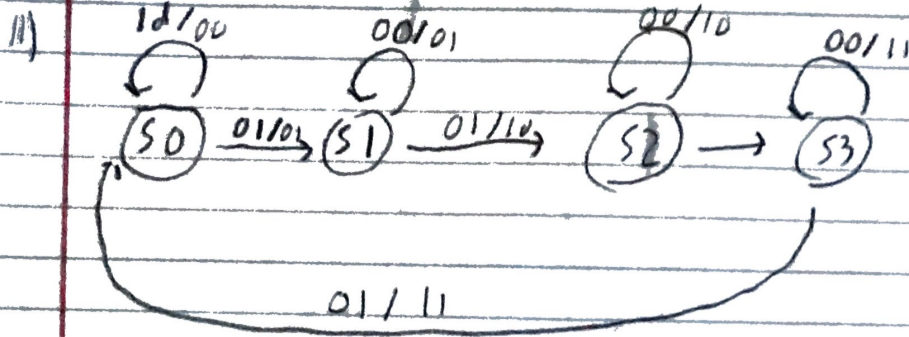 11)
1d/00
00/01
00/10
00/11
S0
01/01
S1
01/10
S2
S3
01/11